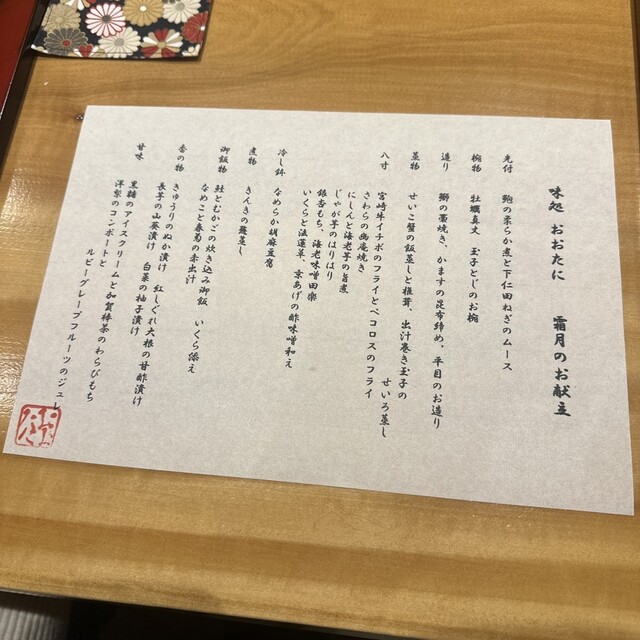 味処 おおたに 霜月のお献立
先付 鮑の柔らか煮と下仁田ねぎのムース
椀物 牡蠣真丈 玉子とじのお椀
造り 鰤の藁焼き、かますの昆布締め、平目のお造り
蒸物 せいこ蟹の飯蒸しと椎茸、出汁巻き玉子の
せいろ蒸し
八寸 宮崎牛イチボのフライとペコロスのフライ
さわらの幽庵焼き
にしんと海老芋の旨煮
じゃが芋のはりはり
銀杏もち、海老味噌田楽
いくらと法蓮草、京あげの酢味噌和え
冷し鉢 なめらか胡麻豆腐
煮物 きんきの蕪蒸し
御飯物 鮭とむかごの炊き込み御飯 いくら添え
なめこと春菊の赤出汁
香の物 きゅうりのぬか漬け 紅しぐれ大根の甘酢漬け
長芋の山葵漬け 白菜の柚子漬け
甘味 黒糖のアイスクリームと加賀棒茶のわらびもち
洋梨のコンポートと
ルビーグレープフルーツのジュレ